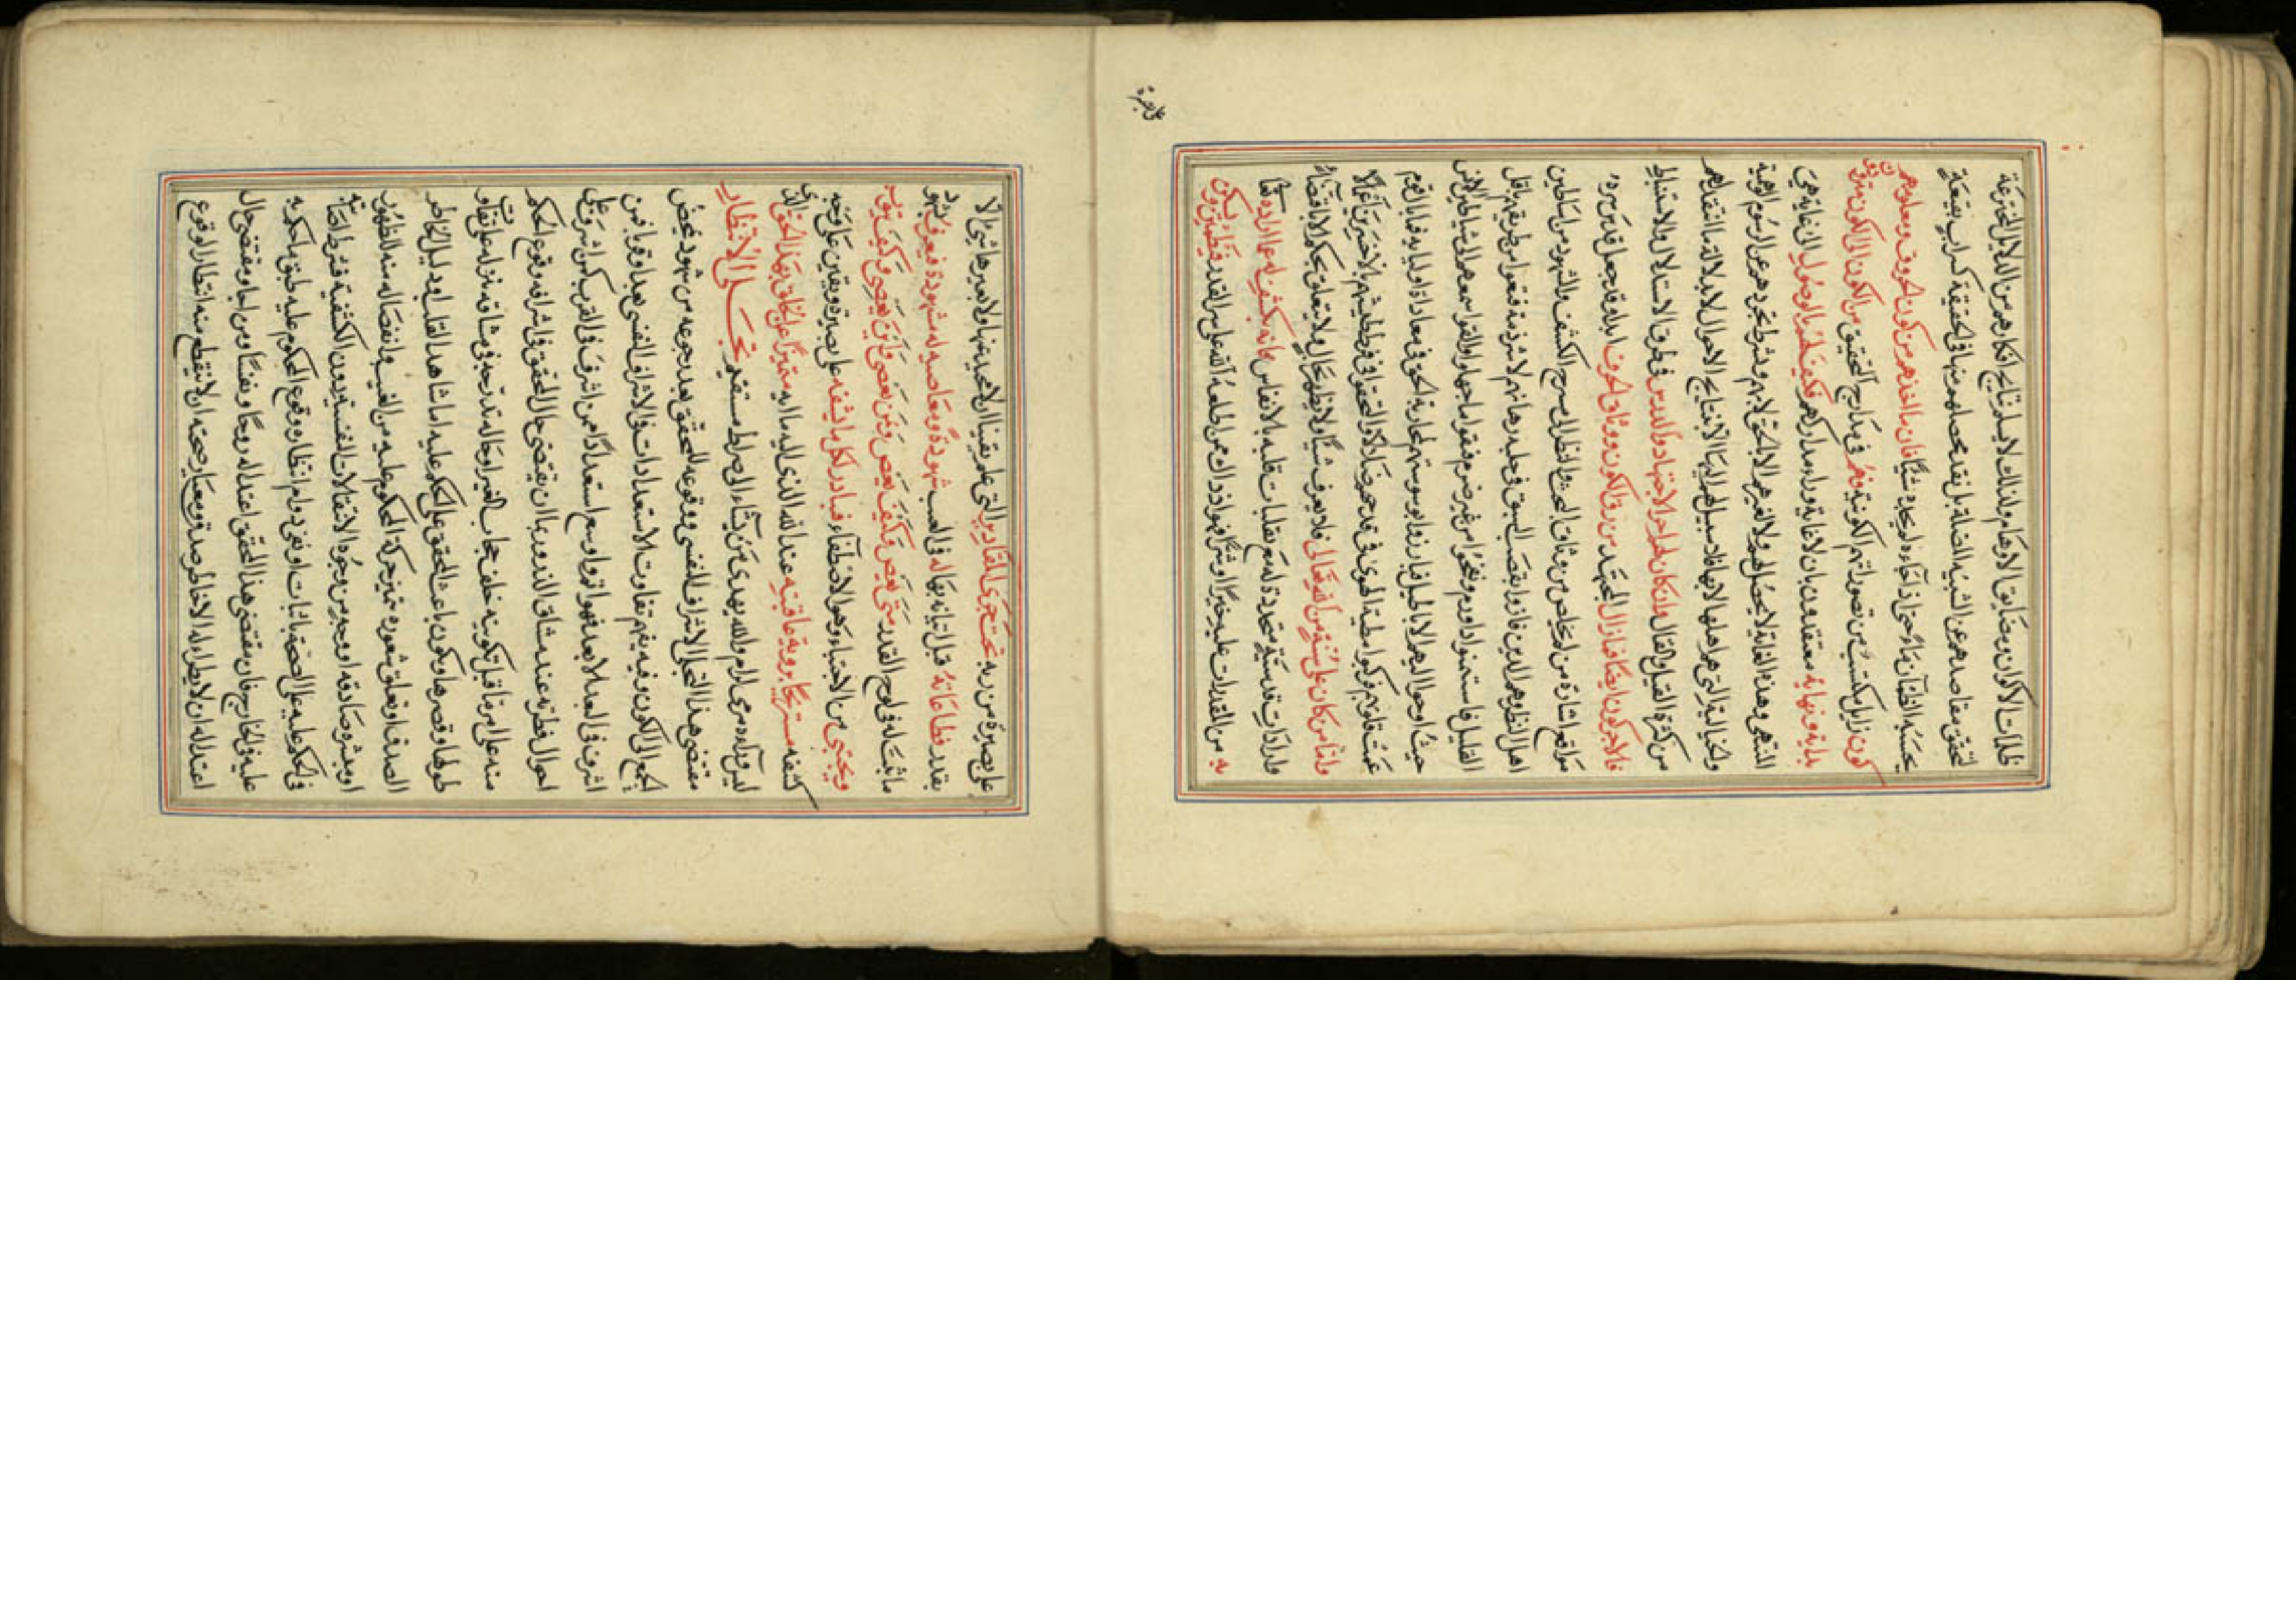 ظلمات الاكوان ومضايق الاوهام ولذلك لا يسلم نتايج افكارهم من الدلايل المخترعة
لتحقق مقاصدهم عن الشبه المضلة بل نقد محصلهم منها في الحقيقة كسراب بقيعة
يحسبه الظمآن ماء حتى اذا جاءه لم يجده شيئا فان ماخذهم من كون الحروف ومعلومهم
كون زايل مكتسب من تصوراتهم الكونية وهم في مدارج التحقيق من الكون الى الكون مترددون
بداية ونهاية معتقدون بان لا غاية وراء مداركهم فكيف لهم الوصول الى غاية هي
المنتهى وهذه الغاية لا يحصل لهم ولا لغيرهم الا بالحق لا بهم وبشرط تجردهم عن الرسوم الوهمية
والخيالية التي هم اهلها لا بها فلا سبيل لهم اليها الا بنتايج الاحوال لا بدلالة ما انتقد لهم
من كثرة القيل والقال وان كان لهم اجر الاجتهاد والدرس في طرق الاستدلال والاستنباط
فالاجر كون ايضا فما زال المجتهد من رق الكون ووثاق الحرف ابدا وقد جعل قدس سره
مواقع اشارة من الخلاص من وثاق البحث والنظر الى مسرح الكشف والشهود من اساطين
اهل النظر وهم الذين فازوا بقصب السبق في حلبة رهانهم لا شرذمة قنعوا من طريقهم باقل
القليل فاستسمنوا ذا ورم ونفخوا من غير ضرم فبقوا ما جهلوا والقوا سمعهم الى شياطين الانس
حيث اوحوا اليهم الاباطيل فبارزوا بوسوستهم لمحاربة الحق في معاداة اوليايه فما بال القوم
عميت قلوبهم وركبوا مطية الهوى في قدحهم ضلالا والتحقوا في ورطتهم بالاخسرين اعمالا
واما من كان على بينة من الله تعالى فلا يعرف شيئا ولا يظهر بحال ولا يتعلق بحكم الا باقتضاء
وارادات قدسية متجددة له مع تقلبات قلبه بالانفاس فانه يكشف له عما اراده هنا
به من المقدرات عليه خيرا وشرا فهو اذ ذاك ممن اطلعه الله على سر القدر فيطمئن ويكون
على بصيرة من ربه تحت مجرى المقادير التي علم يقينا ان لا محيد عنها ولا يعتريه ها شيء الا
بقدر فطاعاته قبل اتيانه بها له في الغيب مشهودة ومعاصيه له مشهودة فيعرف بشهود
ما اثبت له في لوح القدر متى يعصي وعن يعصي وكيف يعصي واين يعصي وكيف يتوب
ويجتبى من الاجتباء وهو الاصطفاء فيبادر لكل ما كشفه على بصيرة ويقين على وجه
كشفه مستريحا بروية عاقبته عند الله الذي اليه مآله متميزا عن الخلق بهذا الحق الذي
ليس وراءه مرمى لرام والله يهدي من يشاء الى صراط مستقيم تجلى الانتظار
مقتضى هذا التجلي الاشراف للنفس ووقوعه للمحقق بعد رجوعه من شهود محض
الجمع الى الكون وفيه يفهم تفاوت الاستعدادات في الاشراف النفسي بعدا وقربا فمن
اشرف في البعد الابعد فهو اقوى واوسع استعدادا ممن اشرف في القرب كمن اشرف على
احوال فطرته عند ميثاق الذر وربما ان يقتضي حال المحقق في اشرافه وقوع الحكم
منه على امر ما قبل تكوينه خلف حجاب الغير او حاله تدرجه في مشاقه منزله على تفاوت
طولها وقصرها ويكون باعث المحقق على الحكم عليه اما شاهد القلب او دليل الخاطر
الصدق او تعلق شعوره بتميز حركة المحكوم عليه من الغيب وانفصاله منه للظهور
او مبشر صادقه او وجه من وجوه الانتقالات النفسية دون الكشفية فشرط اصابته
في الحكم عليه على الصحة باثبات او نفي دوام انتظاره وقوع المحكوم عليه طبق ما حكم به
عليه في الخارج فان مقتضى هذا المحقق اعتداله روحا ونفسا ومن اجلى مقتضى حال
اعتداله ان لا يطراء له الا خاطر صدق ومعيار صحته ان لا ينقطع منه انتظار الوقوع